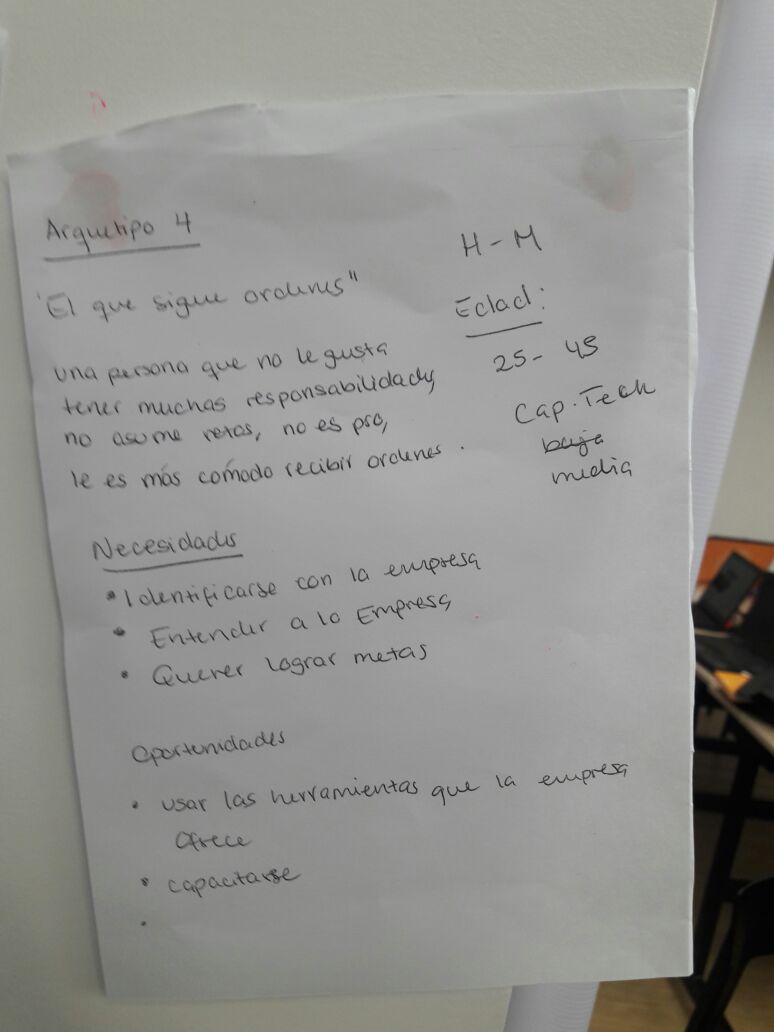 Arquetipo 4
"El que sigue ordenes"
una persona que no le gusta
tener muchas responsabilidades,
no asume retos, no es pro,
le es más cómodo recibir ordenes.
H - M
Edad:
25 - 45
Cap. Tech
baja
media
Necesidades
• Identificarse con la empresa
• Entender a la Empresa
• Querer lograr metas
Oportunidades
• usar las herramientas que la empresa
ofrece
• capacitarse
•